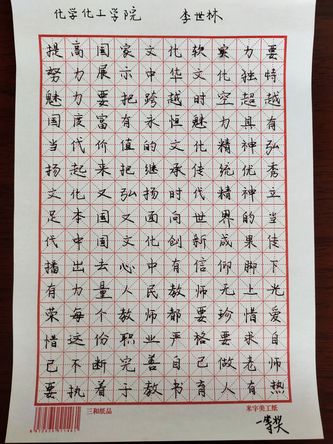 化学化工学院 李世林
提高国家文化软实力要
努力展示中华文化独特
魅力要把跨越时空超越
国度富有永恒魅力具有
当代价值的文化精神弘
扬起来把继承传统优秀
文化又弘扬时代精神立
足本国又面向世界的当
代中国文化创新成果传
播出去心中有信仰脚下
有力量人民教师无上光
荣每个教师都要珍惜爱
惜这份职业严格要求自
己不断完善自己做老师
要执着于教书育人有热
三和纸品 米字美工纸
一等奖